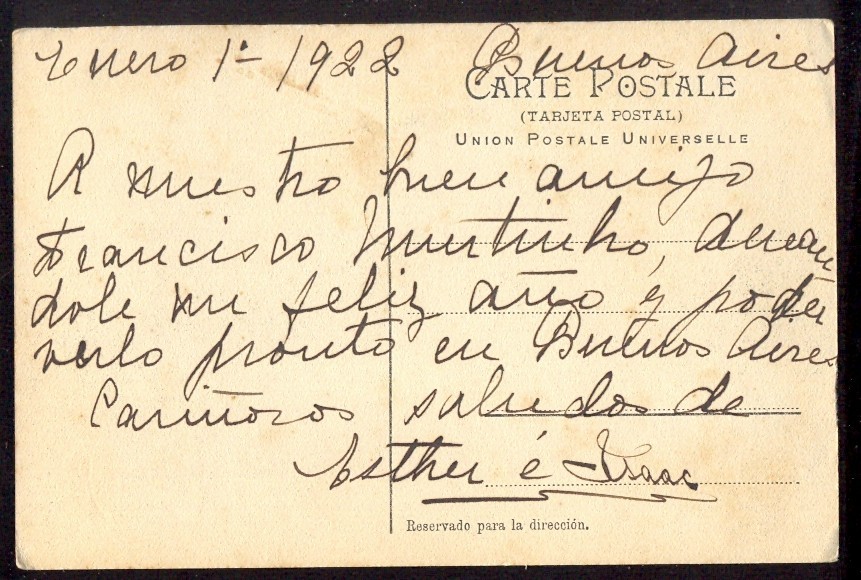 Enero 1º 1922 Buenos Aires
CARTE POSTALE
(TARJETA POSTAL)
UNION POSTALE UNIVERSELLE
A nuestro buen amigo
Francisco Murtinho, desean
dole un feliz año y poder
verlo pronto en Buenos Aires
Cariñosos saludos de
Esther é Isaac
Reservado para la dirección.